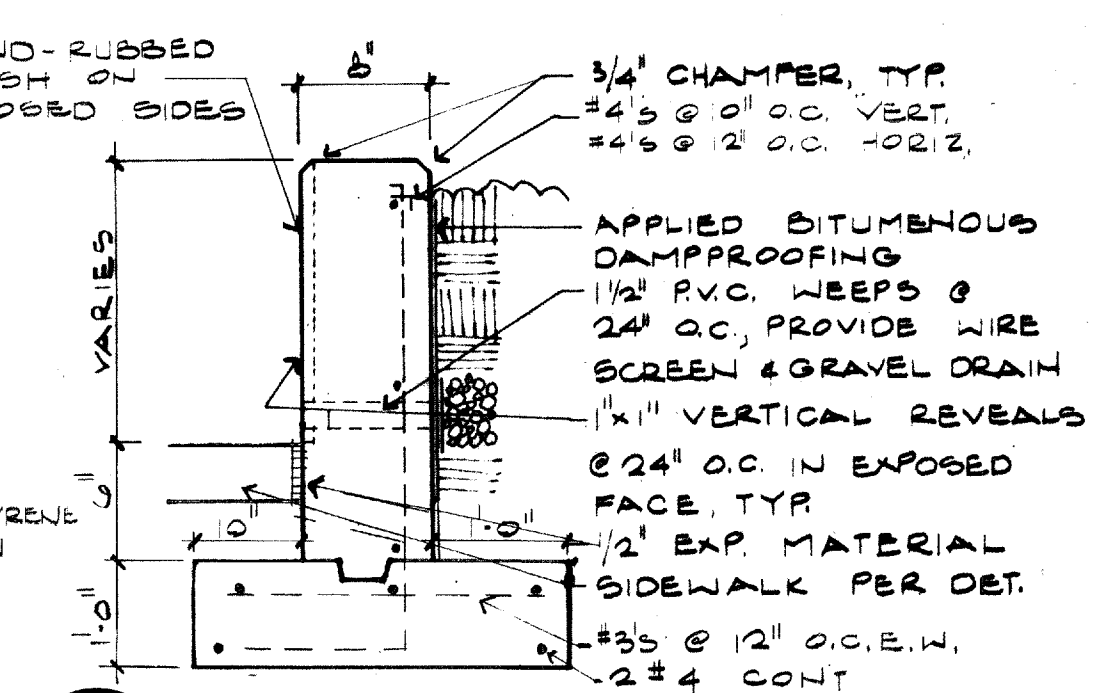 ND-RUBBED
SH ON
OSED SIDES
3/4" CHAMFER, TYP.
#4'S @ 10" O.C. VERT.
#4'S @ 12" O.C. HORIZ.
APPLIED BITUMENOUS
DAMPPROOFING
1 1/2" P.V.C. WEEPS @
24" O.C., PROVIDE WIRE
SCREEN & GRAVEL DRAIN
1"x1" VERTICAL REVEALS
@ 24" O.C. IN EXPOSED
FACE, TYP.
1/2" EXP. MATERIAL
SIDEWALK PER DET.
#3'S @ 12" O.C.E.W.
2 #4 CONT
VARIES
6"
YRENE
N
10"
1'-0"
1'-0"